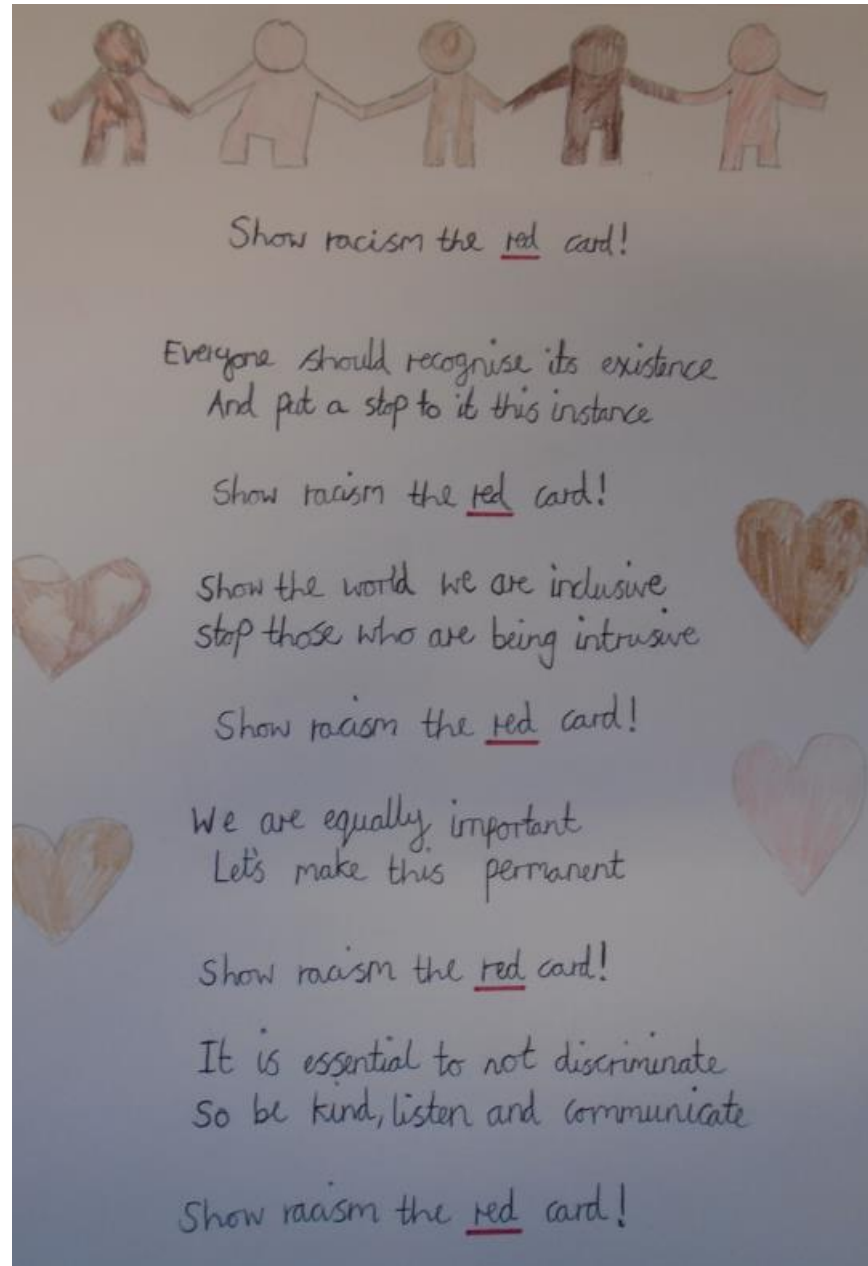 Show racism the red card!
Everyone should recognise its existence
And put a stop to it this instance
Show racism the red card!
Show the world we are inclusive
Stop those who are being intrusive
Show racism the red card!
We are equally important
Let's make this permanent
Show racism the red card!
It is essential to not discriminate
So be kind, listen and communicate
Show racism the red card!